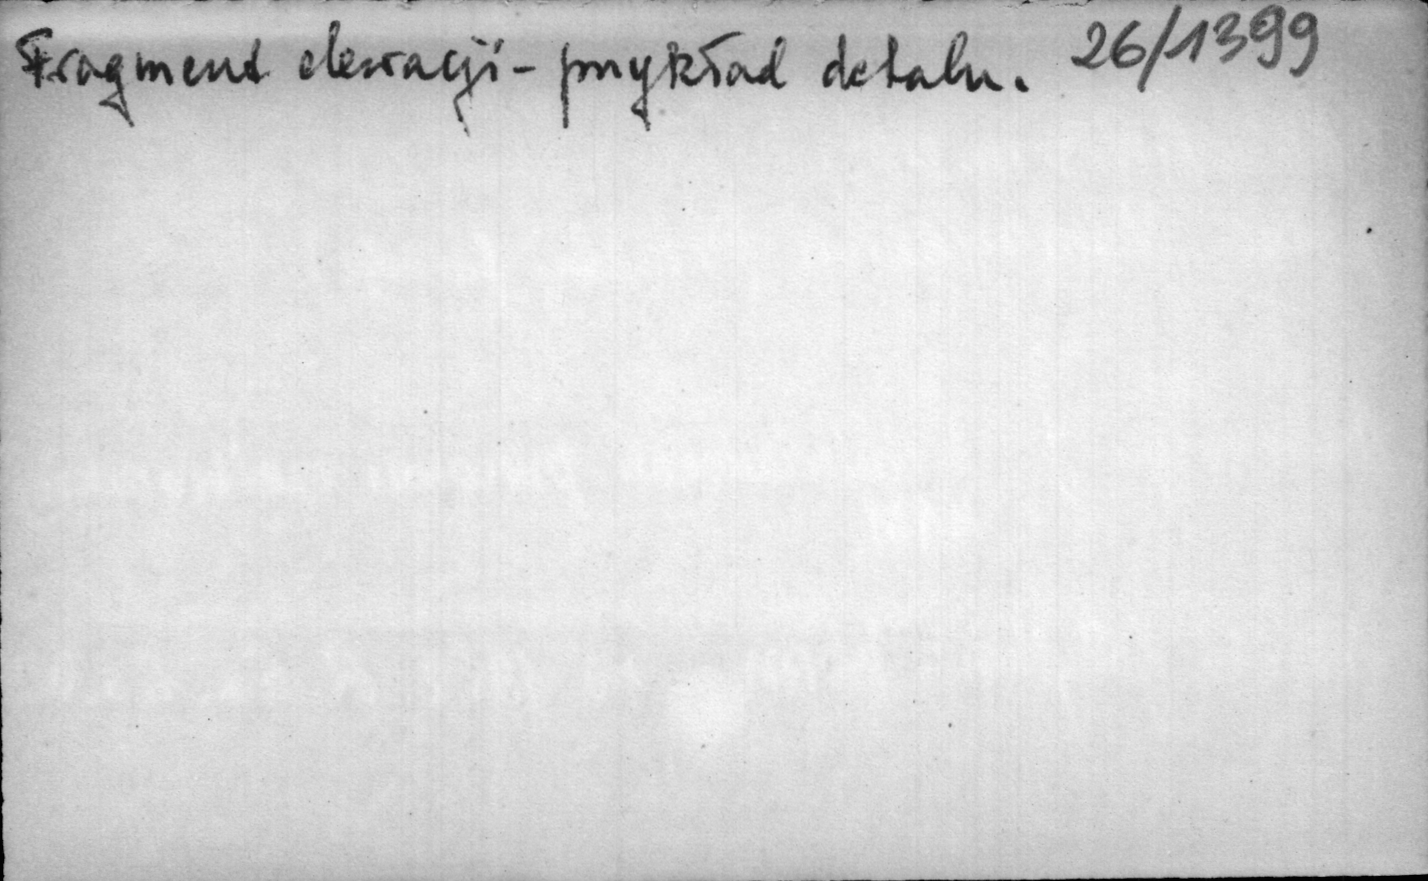 Fragment elewacji - przykład detalu. 26/1399